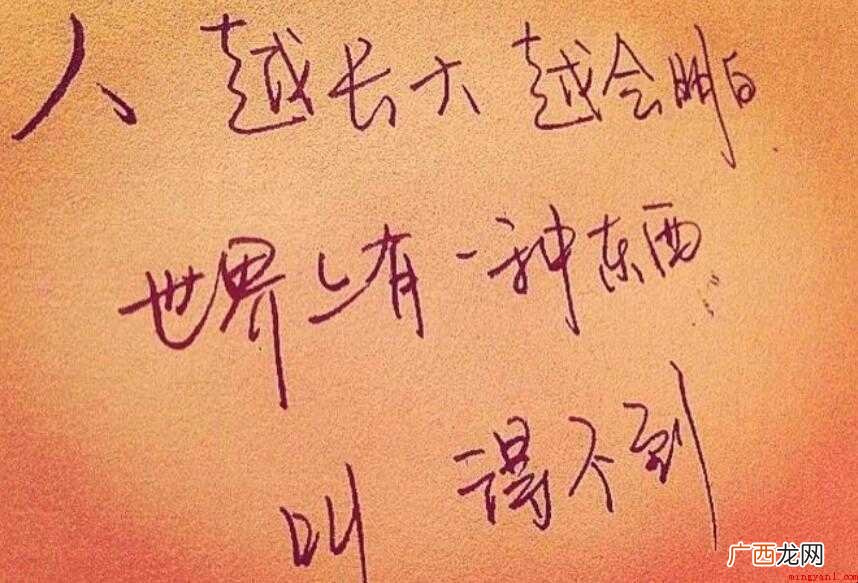 人 越长大 越会明白
世界上有一种东西
叫 得不到
广西龙网
mingyanl.com